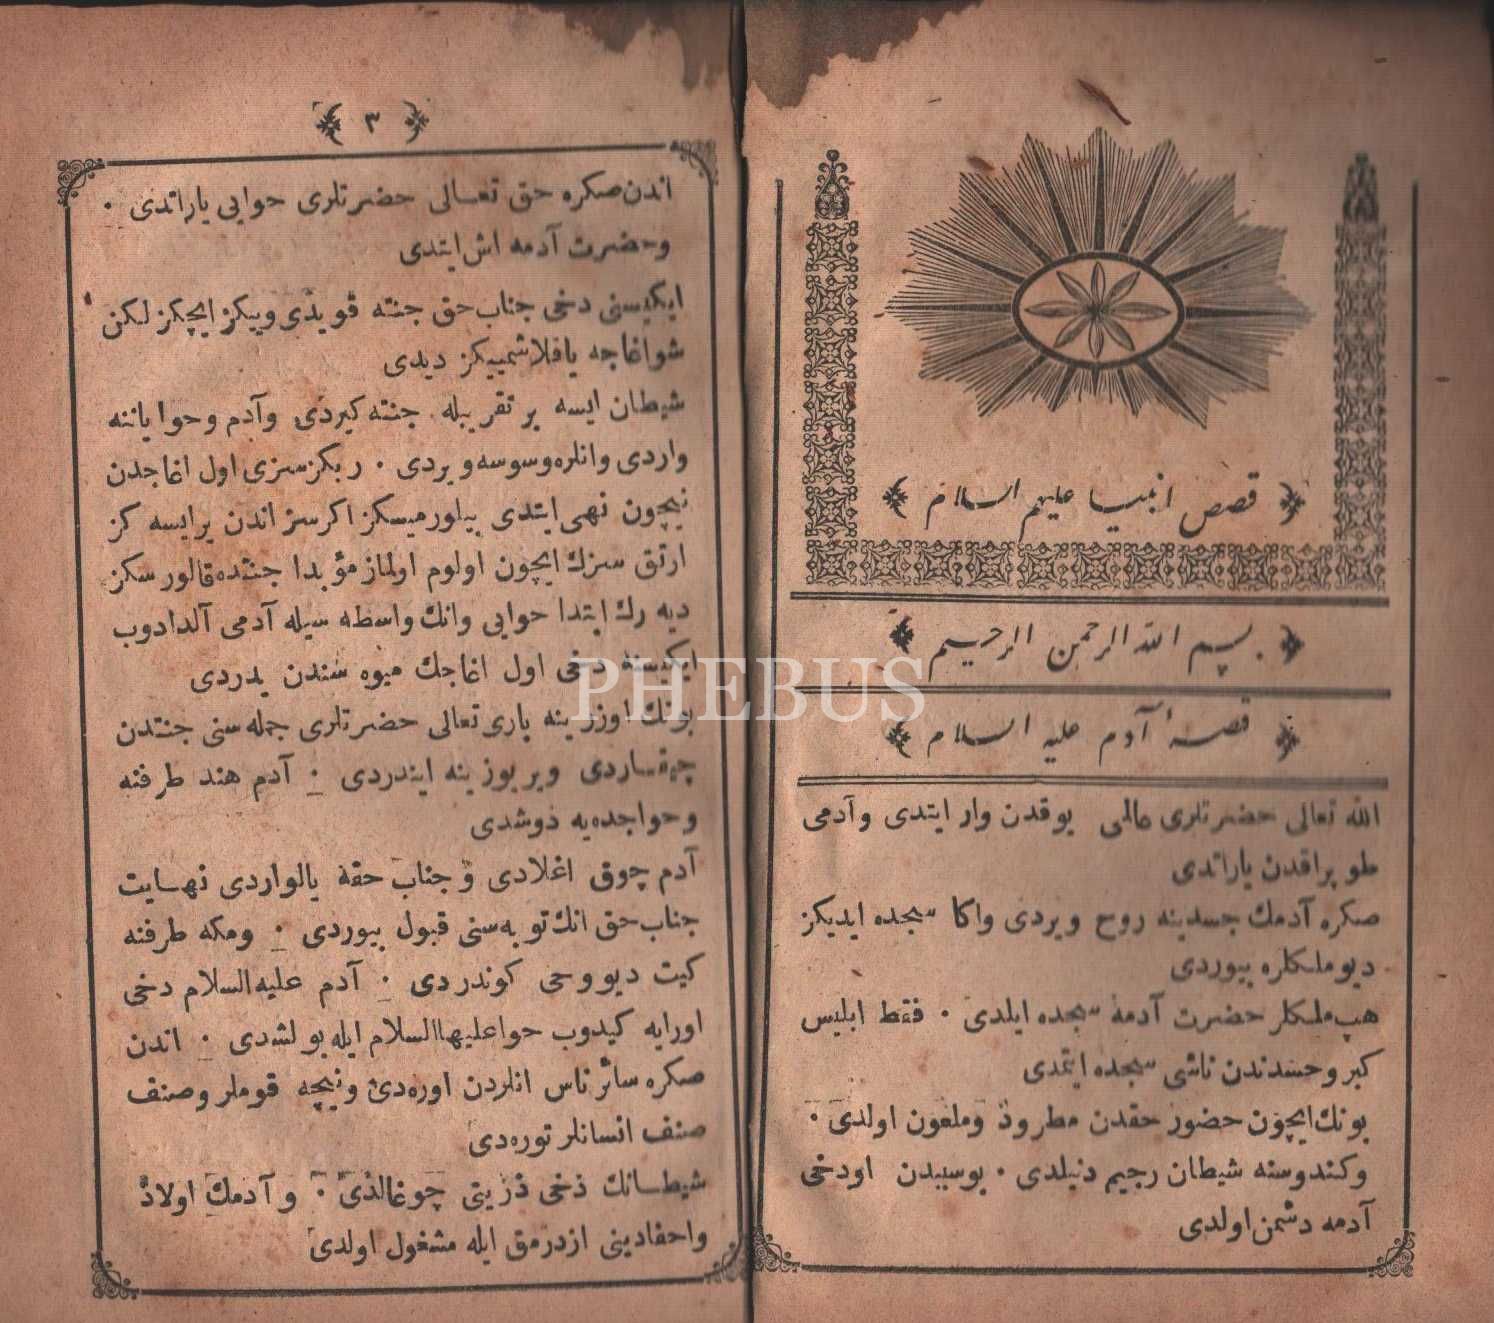 قصص انبیا علیهم السلام
بسم الله الرحمن الرحیم
قصهٔ آدم علیه السلام
الله تعالی حضرتلری عالمی یوقدن وار ایتدی وآدمی
طوپراقدن یاراتدی
صکره آدمك جسدینه روح ویردی واکا سجده ایدیکز
دیو ملکلره بیوردی
هپ ملکلر حضرت آدمه سجده ایلدی · فقط ابلیس
کبر وحسدندن ناشی سجده ایتمدی
بونك ایچون حضور حقدن مطرود وملعون اولدی ·
وکندوسنه شیطان رجیم دنیلدی · بوسببدن اودخی
آدمه دشمن اولدی
﴿ ٣ ﴾
اندن صکره حق تعالی حضرتلری حوایی یاراتدی ·
وحضرت آدمه اش ایتدی
ایکیسنی دخی جناب حق جنته قویدی وییکز ایچکز لکن
شو اغاجه یاقلاشمییکز دیدی
شیطان ایسه بر تقریبله جنته کیردی وآدم وحوا یاننه
واردی وانلره وسوسه ویردی · ربکز سزی اول اغاجدن
نیچون نهی ایتدی بیلورمیسکز اکر سز اندن یرایسه کز
ارتق سزك ایچون اولوم اولماز مؤبدا جنتده قالورسکز
دیه رك ابتدا حوایی وانك واسطه سیله آدمی آلدادوب
ایکیسنه دخی اول اغاجك میوه سندن یدردی
بونك اوزرینه باری تعالی حضرتلری جمله سنی جنتدن
چیقاردی ویریوزینه ایندردی · آدم هند طرفنه
وحوا جده یه دوشدی
آدم چوق اغلادی و جناب حقه یالواردی نهایت
جناب حق انك توبه سنی قبول بیوردی · ومکه طرفنه
کیت دیو وحی کوندردی · آدم علیه السلام دخی
اورایه کیدوب حوا علیها السلام ایله بولشدی · اندن
صکره سائر ناس انلردن اوره دی ونیچه قوملر وصنف
صنف انسانلر توره دی
شیطانك دخی ذریتی چوغالدی · و آدمك اولاد
واحفادینی ازدرمق ایله مشغول اولدی
PHEBUS